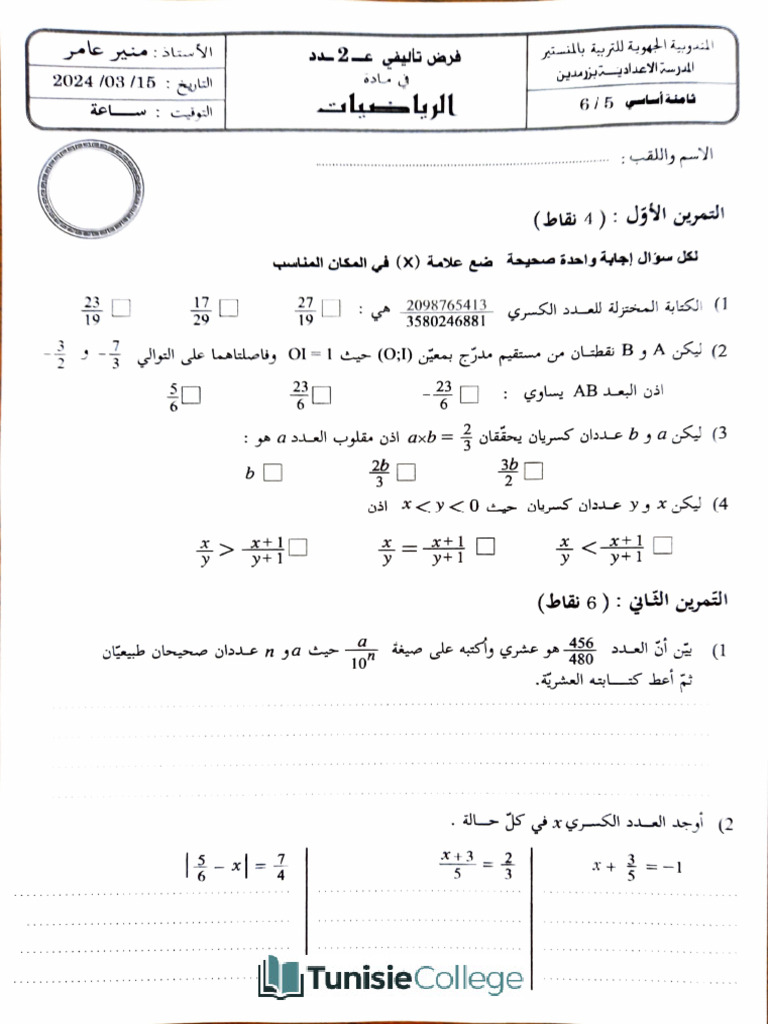 المندوبية الجهوية للتربية بالمنستير
المدرسة الاعدادية بزرمدين
ثامنة أساسي 5 / 6
فرض تأليفي عـ2ـدد
في مادة
الرياضيات
الأستاذ : منير عامر
التاريخ : 15/ 03/ 2024
التوقيت : ساعة
الاسم واللقب : ................................
التمرين الأوّل : ( 4 نقاط)
لكل سؤال إجابة واحدة صحيحة ضع علامة (X) في المكان المناسب
1) الكتابة المختزلة للعدد الكسري 2098765413/3580246881 هي : □ 27/19 □ 17/29 □ 23/19
2) ليكن A و B نقطتان من مستقيم مدرّج بمعيّن (O;I) حيث OI = 1 وفاصلتاهما على التوالي -7/3 و -3/2
اذن البعد AB يساوي : □ -23/6 □ 23/6 □ 5/6
3) ليكن a و b عددان كسريان يحقّقان a×b = 2/3 اذن مقلوب العدد a هو :
□ 3b/2 □ 2b/3 □ b
4) ليكن x و y عددان كسريان حيث x < y < 0 اذن
□ x/y < x+1/y+1 □ x/y = x+1/y+1 □ x/y > x+1/y+1
التمرين الثاني : ( 6 نقاط)
1) بيّن أنّ العدد 456/480 هو عشري وأكتبه على صيغة a/10ⁿ حيث a و n عددان صحيحان طبيعيّان
ثمّ أعط كتابته العشريّة.
2) أوجد العدد الكسري x في كلّ حالة .
x + 3/5 = −1
x+3/5 = 2/3
|5/6 − x| = 7/4
TunisieCollege